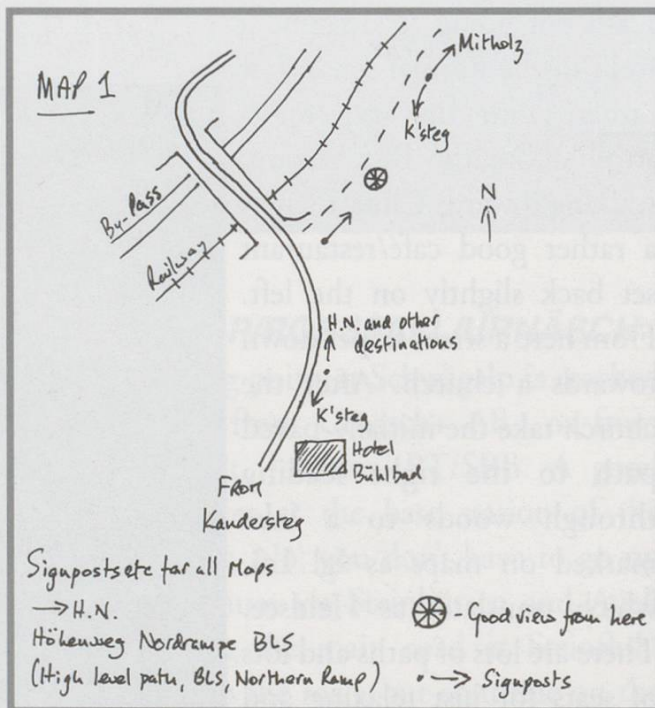 MAP 1
Mitholz
K'steg
N
By-Pass
Railway
H.N. and other
destinations
K'steg
Hotel
Bühlbad
From
Kandersteg
Signposts etc for all Maps
→ H.N.
Höhenweg Nordrampe BLS
(High level path, BLS, Northern Ramp)
Good view from here
Signposts